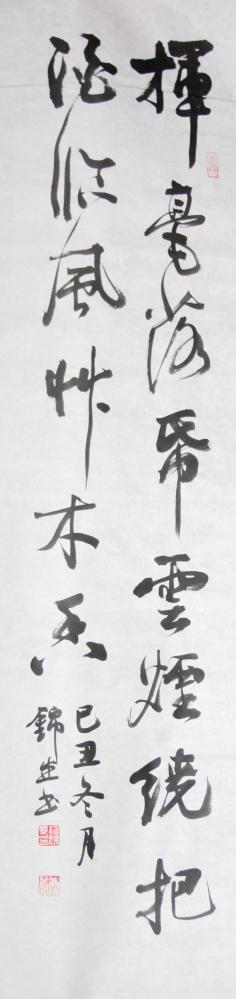 揮毫落帋雲煙繞把
酒臨風艸木香
己丑冬月
錦生书